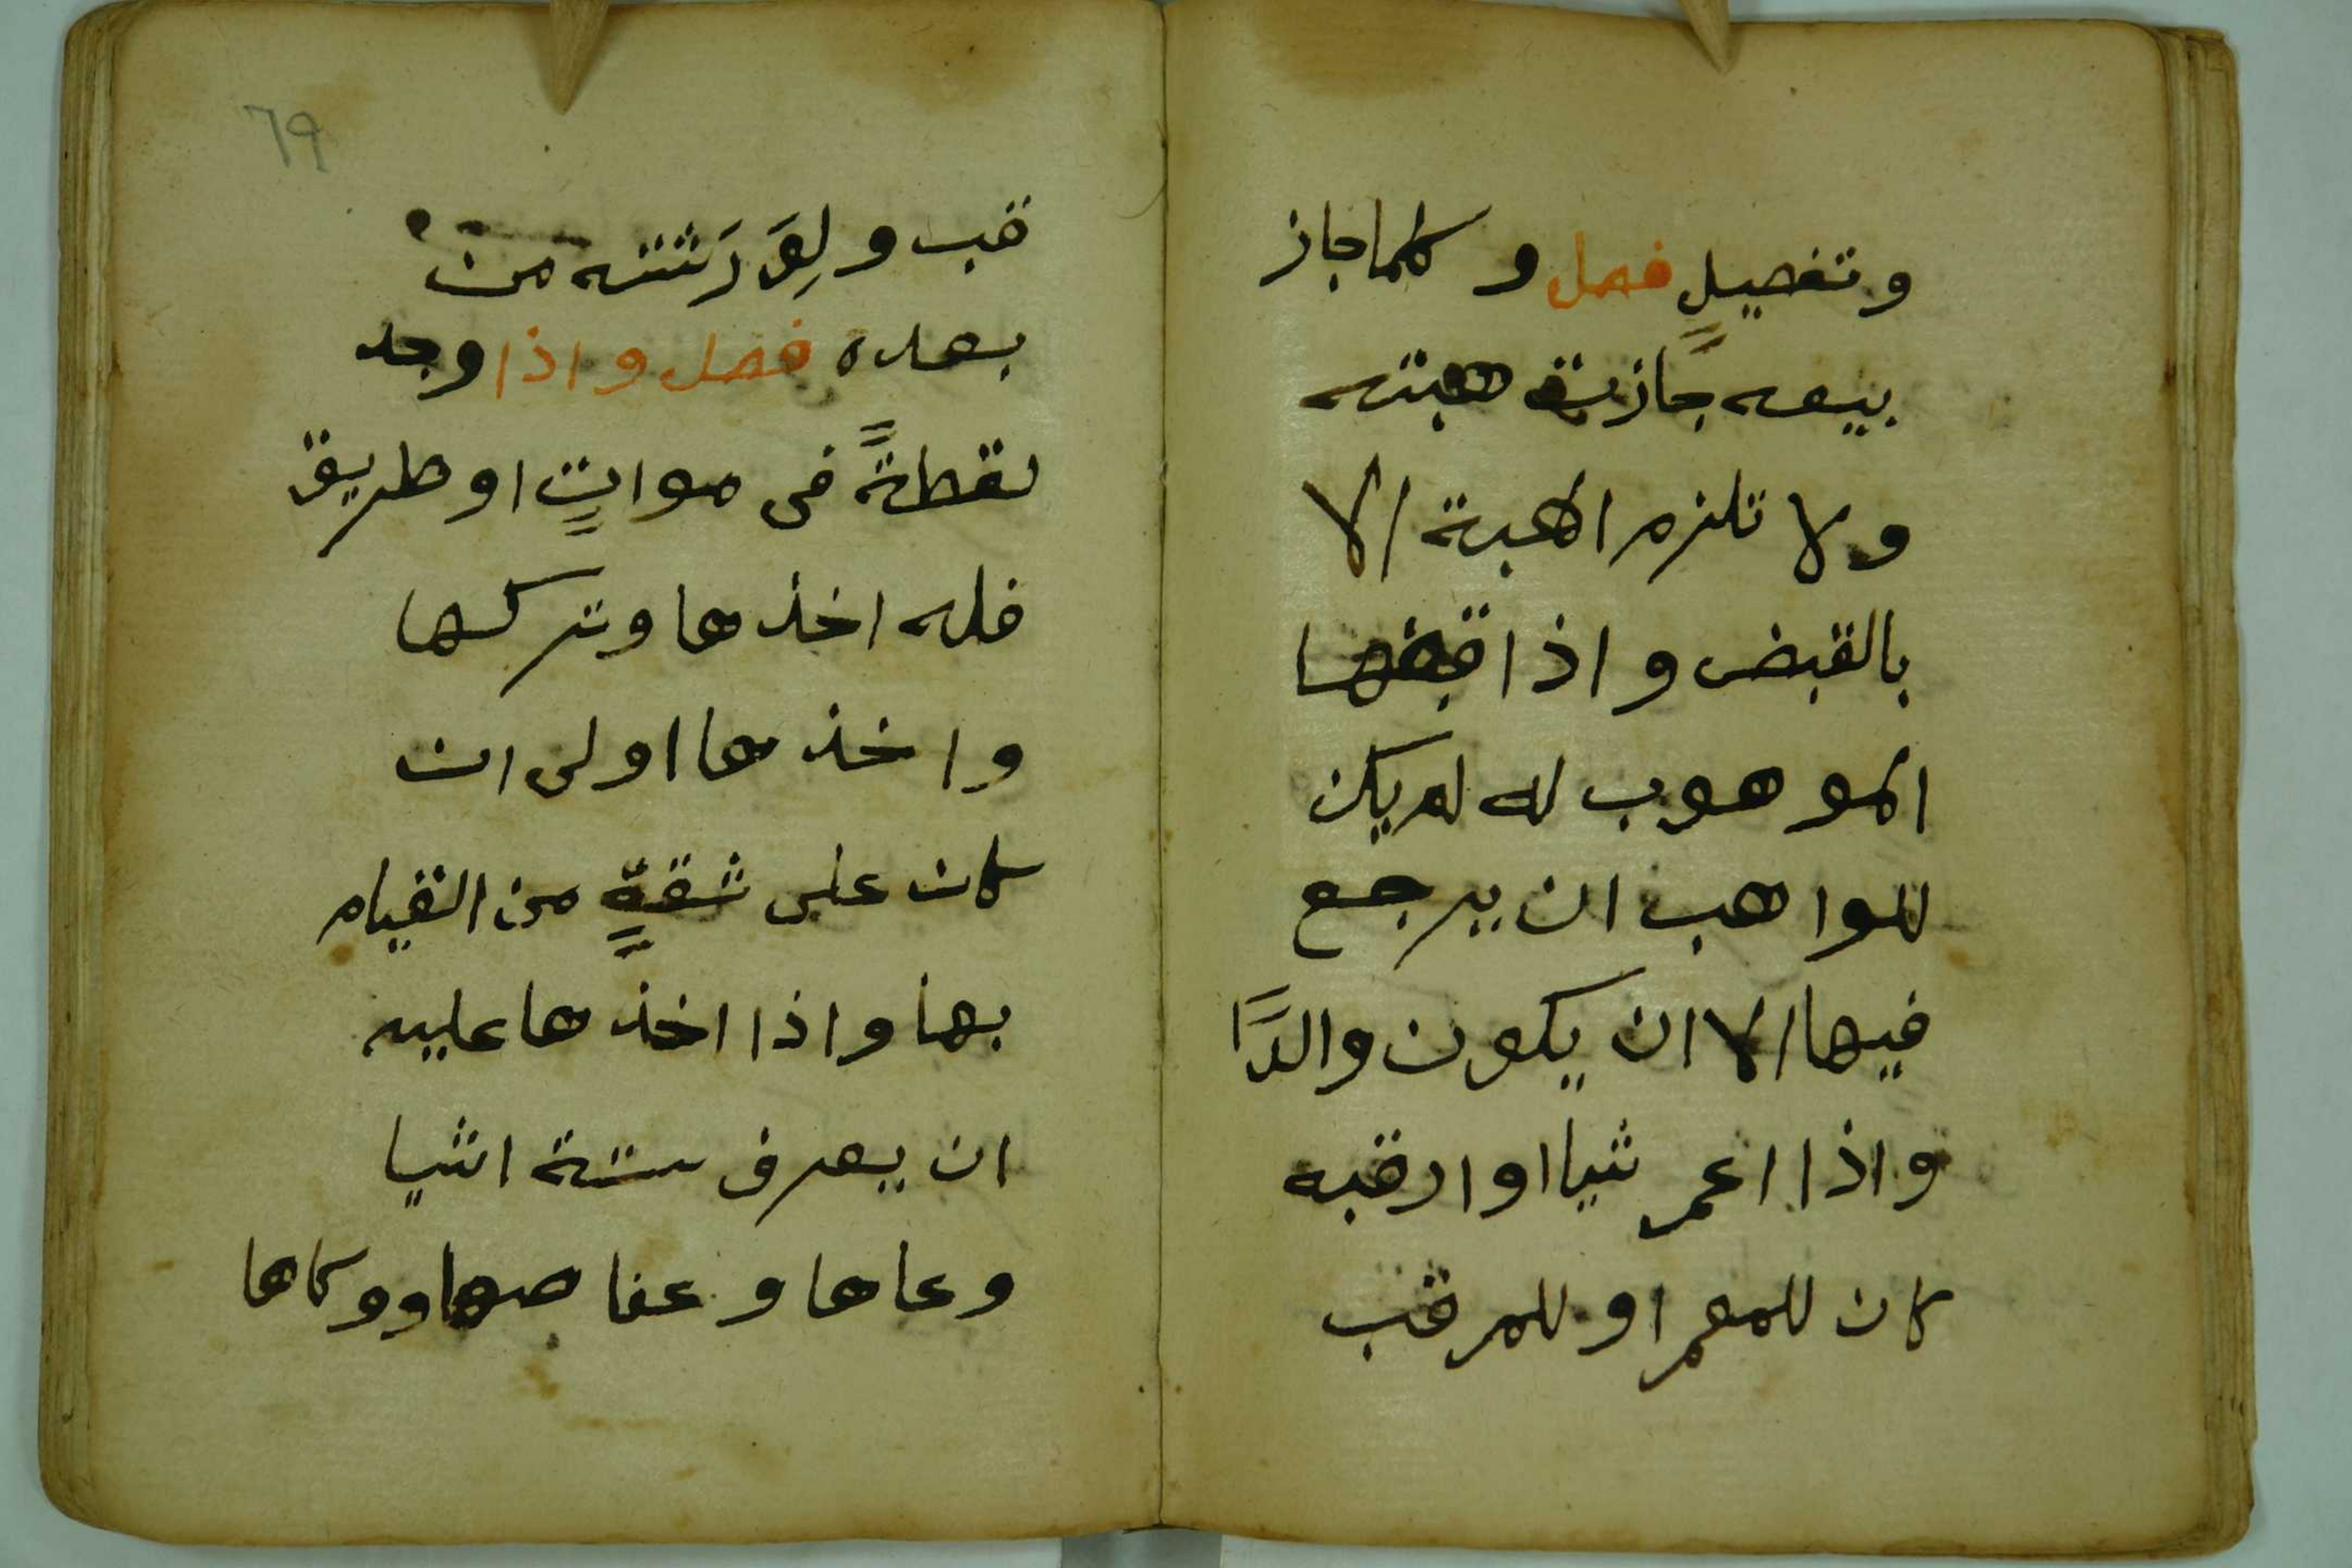 وتفصيلٍ فصل وكلما جاز
بيعه جازت هبته
ولا تلزم الهبة الا
بالقبض واذا قبضها
الموهوب له لم يكن
للواهب ان يرجع
فيها الا ان يكون والدًا
واذا اعمر شيا او ارقبه
كان للمعمر او للمرقب
٦٩
قب ولِوَرَثته من
بعده فصل واذا وجد
لقطةً فى مواتٍ او طريق
فله اخذها وتركها
واخذها اولى ان
كان على ثقةٍ من القيام
بها واذا اخذها عليه
ان يعرف ستة اشيا
وعاها وعفاصها ووكاها